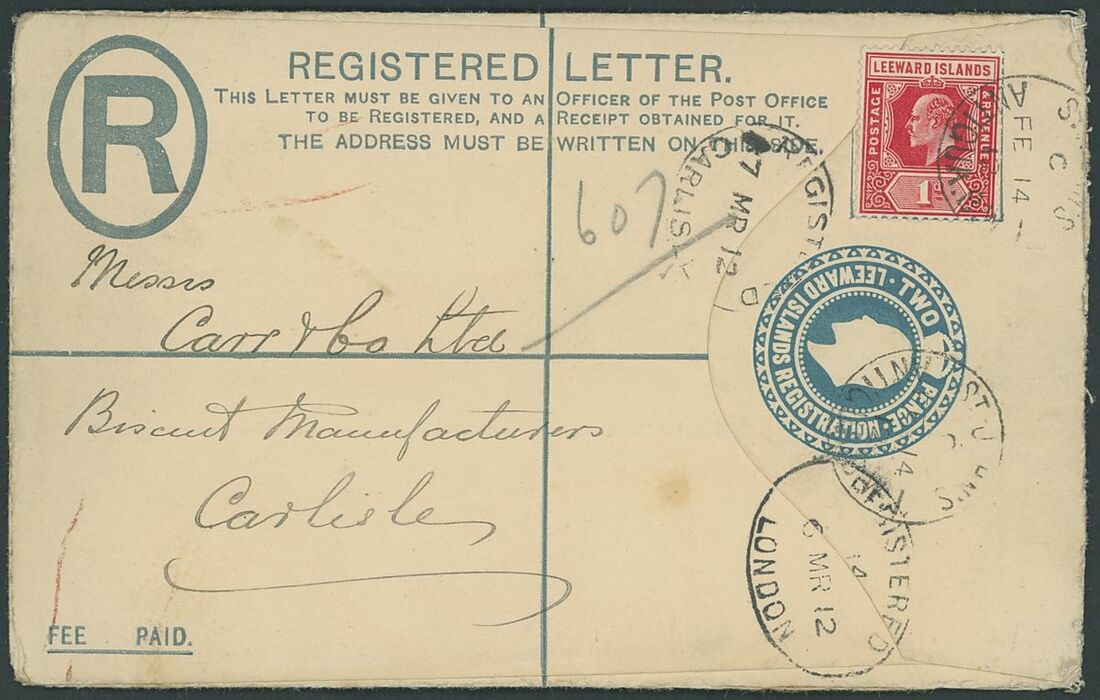 R
REGISTERED LETTER.
THIS LETTER MUST BE GIVEN TO AN OFFICER OF THE POST OFFICE
TO BE REGISTERED, AND A RECEIPT OBTAINED FOR IT.
THE ADDRESS MUST BE WRITTEN ON THIS SIDE.
LEEWARD ISLANDS
POSTAGE
REVENUE
1d
607
REGISTERED
7 MR 12
CARLISLE
FE 14
LEEWARD ISLANDS REGISTRATION · TWO PENCE ·
Messrs
Carr & Co Ltd
Biscuit Manufacturers
Carlisle
REGISTERED
14
6 MR 12
LONDON
FEE PAID.